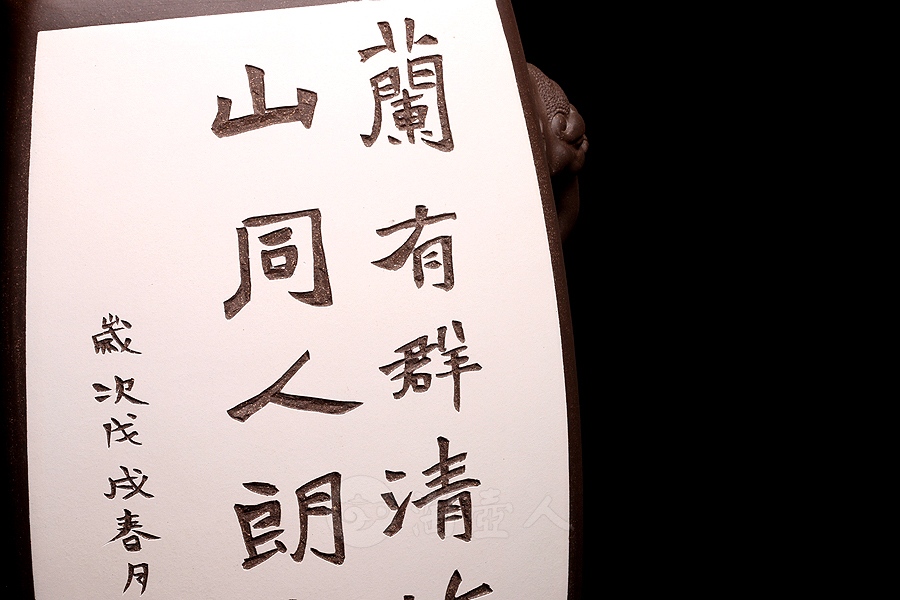 蘭有群清
山同人朗
歲次戊戌春月
壺人